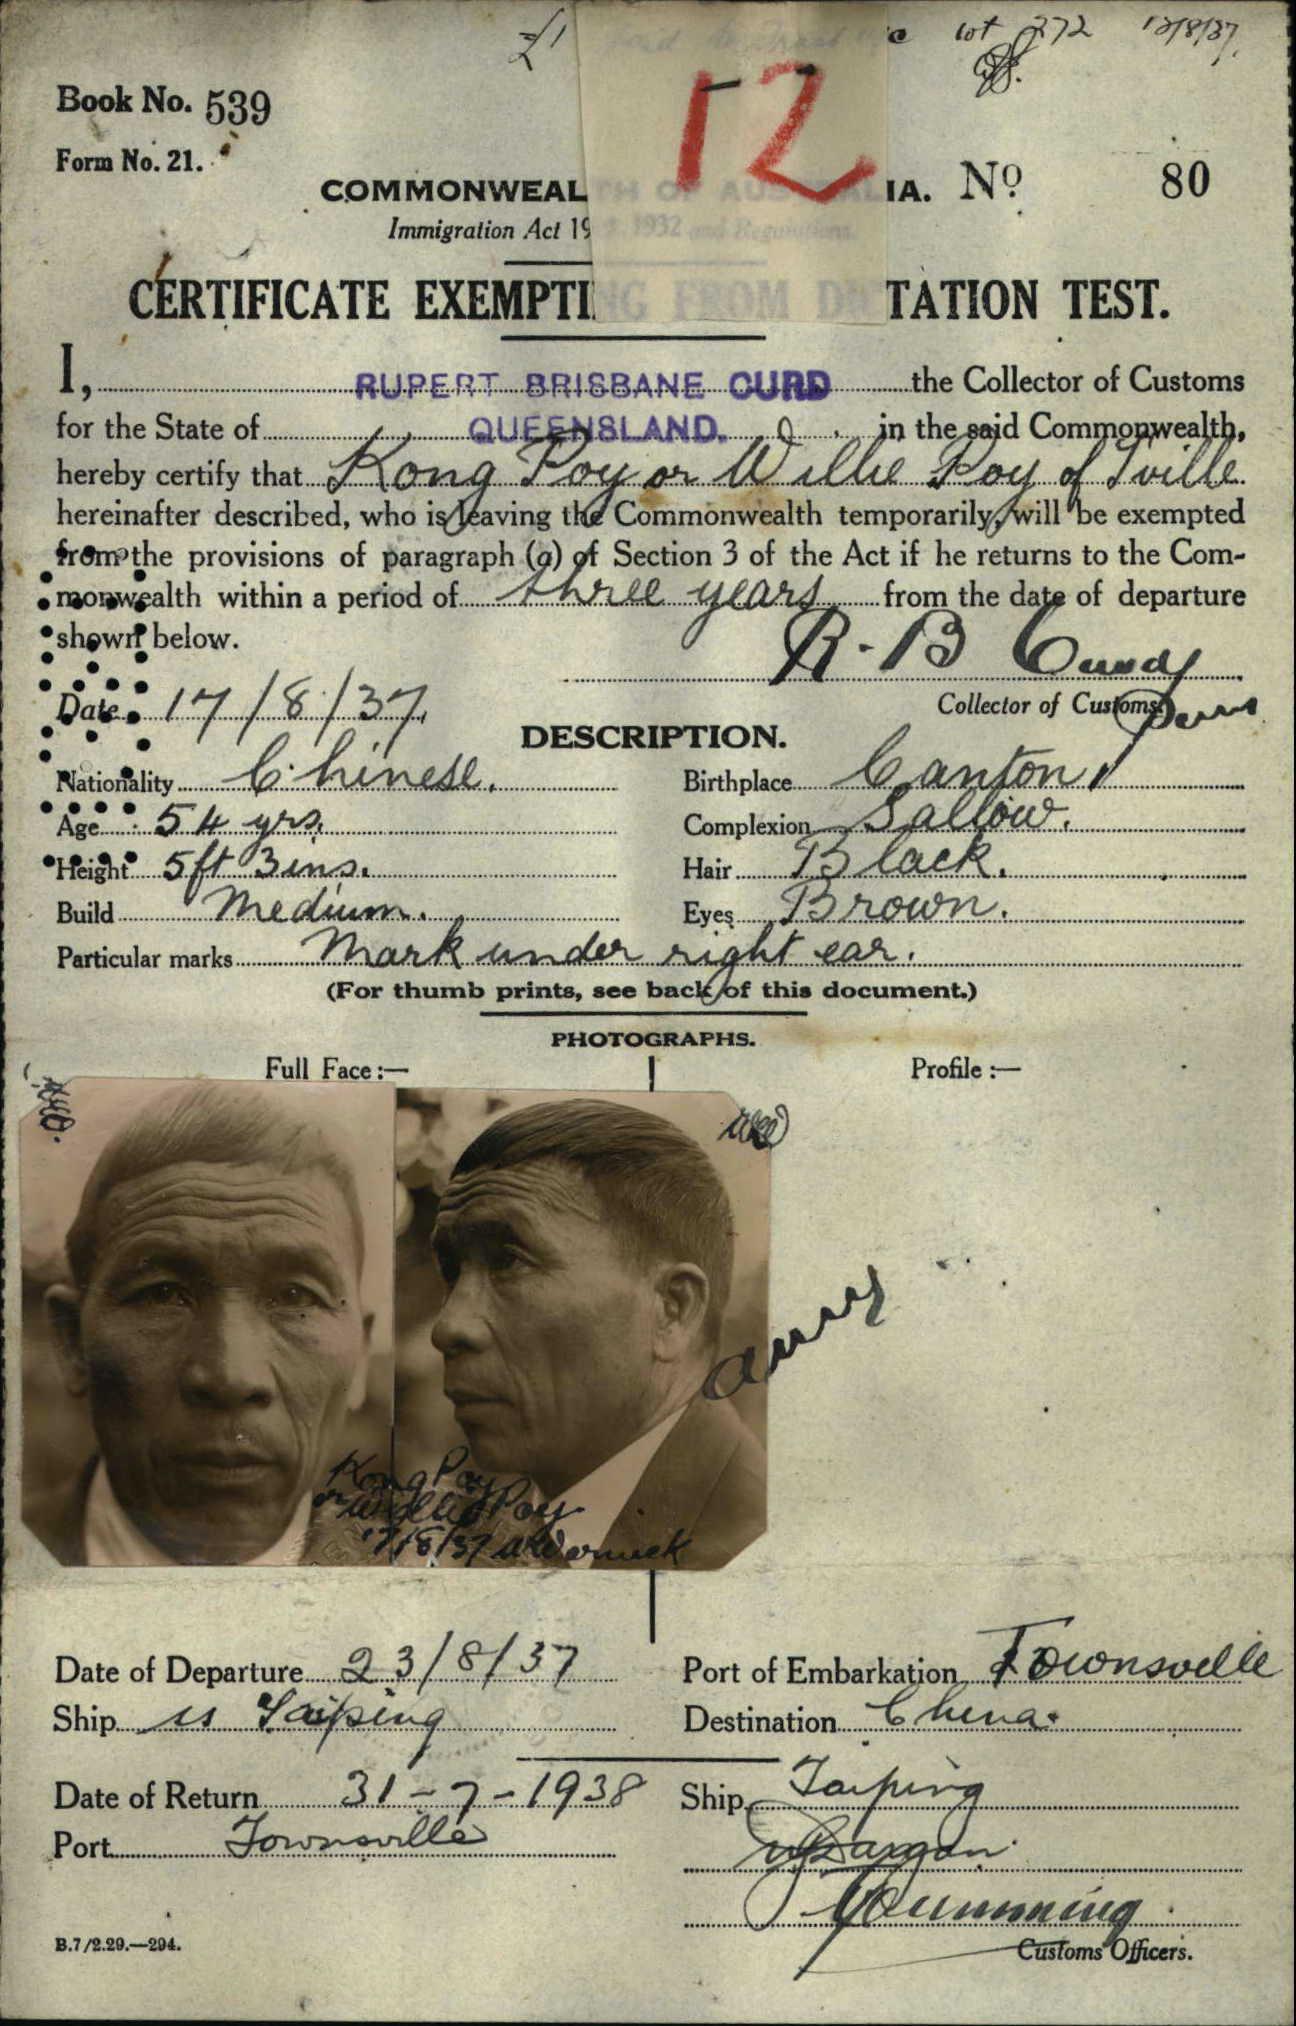 £1 lot 272 12/8/37.
12
Book No. 539
Form No. 21.
COMMONWEALTH OF AUSTRALIA. No 80
Immigration Act 19 1932 and Regulations.
CERTIFICATE EXEMPTING FROM DICTATION TEST.
I, RUPERT BRISBANE CURD the Collector of Customs
for the State of QUEENSLAND. in the said Commonwealth,
hereby certify that Kong Poy or Willie Poy of T'ville
hereinafter described, who is leaving the Commonwealth temporarily, will be exempted
from the provisions of paragraph (a) of Section 3 of the Act if he returns to the Com-
monwealth within a period of three years from the date of departure
shown below.
R. B Curd
Date 17/8/37. Collector of Customs.
DESCRIPTION.
Nationality Chinese. Birthplace Canton
Age 54 yrs. Complexion Sallow.
Height 5ft 3ins. Hair Black.
Build Medium. Eyes Brown.
Particular marks Mark under right ear.
(For thumb prints, see back of this document.)
PHOTOGRAPHS.
Full Face :— Profile :—
Kong Poy
or Willie Poy
17/8/37
Date of Departure 23/8/37 Port of Embarkation Townsville
Ship ss Taiping Destination China.
Date of Return 31-7-1938 Ship Taiping
Port Townsville
Cumming
B.7/2.29.—294. Customs Officers.